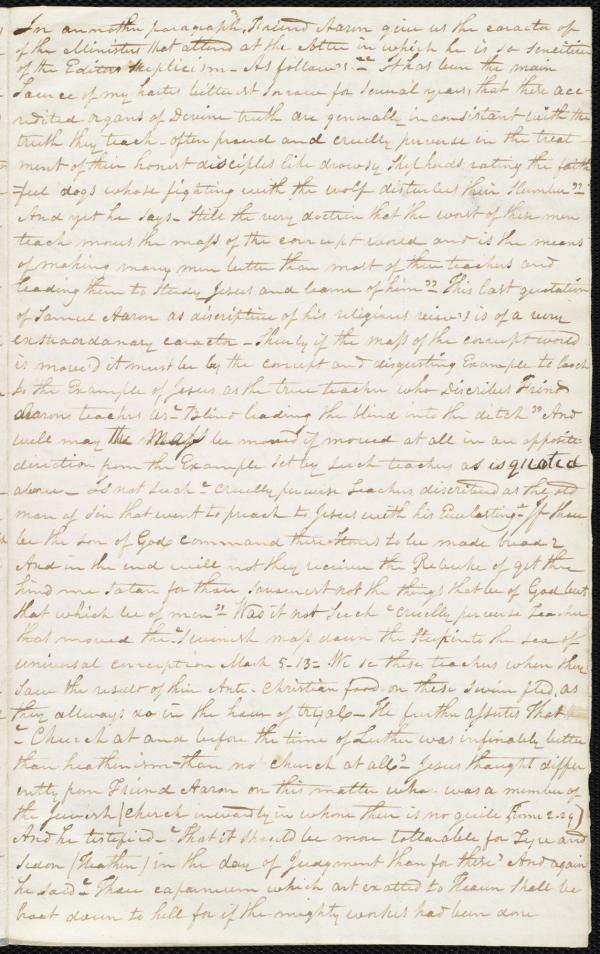 In an nother paragraph, Friend Aaron give us the caracter of
of the Ministers that attend at the Alter in which he is so sencitive
of the Editors skepticism - As follows "It has been the main
Source of my hartes bitterest Sorrow for Several years, that these acc-
redited organs of Devine truth are generally inconsistant with the
truth they teach - often proud and cruelly perverse in the treat-
ment of their honest disciples like drowsy Shepherds rating the faith
-ful dogs whose fighting with the wolf disturbes their Slumber"
And yet he Says - Still the very doctrin that the worst of these men
teach moves the mass of the corrupt world and is the means
of making many men better than most of their teachers and
leading them to Study Jesus and learne of him" This last quotation
of Samuel Aaron as discriptive of his religious views is of a very
extraordanary caracter - Shurly if the mass of the corrupt world
is move'd it must be by the corrupt and disgusting Example to look
to the Example of Jesus as the true teacher who Discribes Friend
Aaron teachers as "Blind leading the blind into the ditch" And
well may the Mass be moved if moved at all in an opposite
direction from the Example Set by Such teachers as is quoted
above - Is not Such "cruelly perverse teachers discribed as the old
man of Sin that went to preach to Jesus with his Everlasting "If thou
be the Son of God command these Stones to be made bread?
And in the end will not they receive the Rebuke of get the
hind me Satan for thou Savourest not the things that be of God but
that which be of men" Was it not Such "cruelly perverse teacher
that moved the "Swinish mass down the Steep into the Sea of
universal corruption Mark 5-13 - We se these teachers when they
Saw the result of their Ante-christian food on these Swin fled, as
they allways do in the hour of tryal - He further asserts that
"Church at and before the time of Luther was infinately better
than heathenism - than no Church at all" Jesus thought differ
ently from Friend Aaron on this matter who was a member of
the Jewish (Church inwardly in whome their is no guile Rom 2-29)
And he testified - "That it should be more tollarable for Tyre and
Sidon (Heathen) in the day of Judgment than for these" And again
he Said "Thou capurnium which art exalted to Heaven Shall be
braot down to hell for if the mighty workes had been done